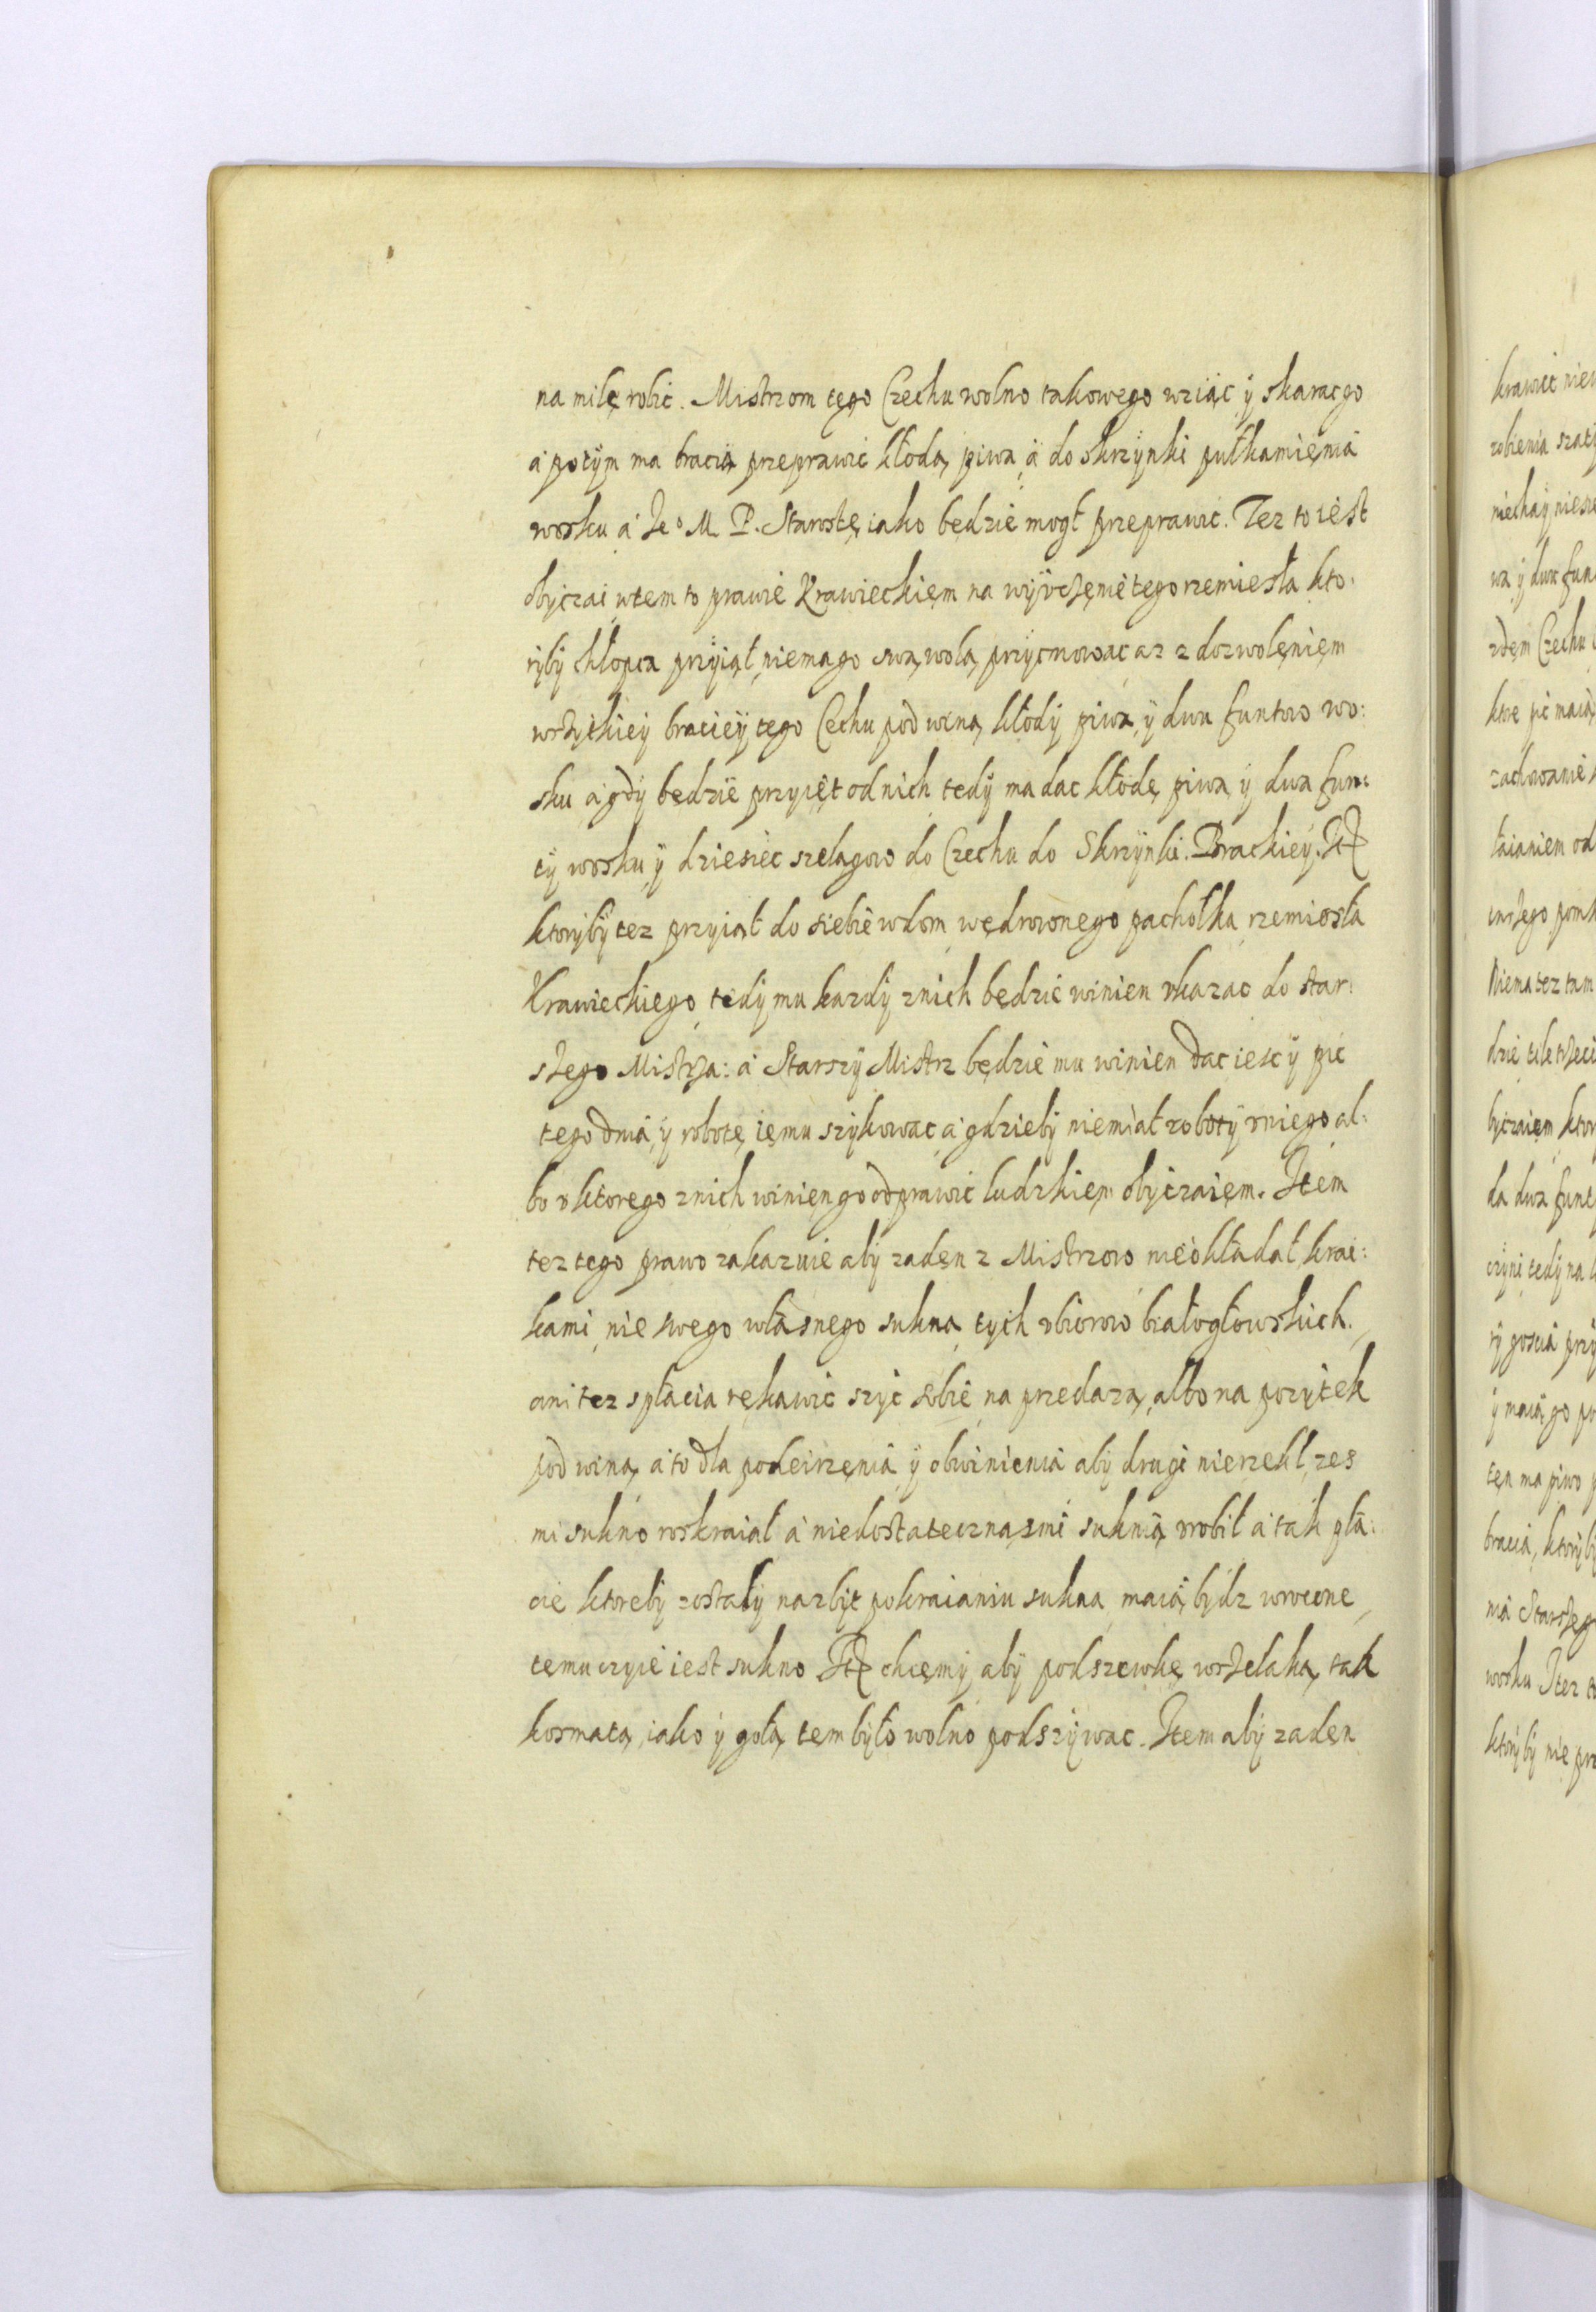 na milę robic. Mistrzom tego Czechu wolno takowego wziąc ÿ skarac go
á potÿm ma bracią przeprawic kłodą piwa á do skrzÿnki pułkamięnia
wosku á Jeº M P. Starostę iako będzie mogł przeprawic. Tez to iest
obÿczai wtem to prawie Krawieckięm na wÿvczęnie tego rzemiesła kto:
rÿbÿ chłopca przÿiął niema go swą wolą przÿimowac az z dozwolęnięm
wszÿtkieÿ bracieÿ tego Cechu pod winą kłodÿ piwa ÿ dwu funtow wo:
sku á gdÿ będzie przyięt od nich tedÿ ma dac kłodę piwa ÿ dwa fun:
tÿ wosku ÿ dziesiec szelagow do Czechu do Skrzÿnki. Brackieÿ. It
ktorÿbÿ tez przyiął do siebie wdom wędrownego pachołka rzemiosła
Krawieckiego tedÿ mu kazdÿ znich będzie winien vkazac do star:
szego Mistrza: á Starszÿ Mistrz będzie mu winien dac iesc ÿ pic
tego dnia ÿ robotę ięmu szÿkowac á gdziebÿ niemiał robotÿ vniego al:
bo v ktorego znich winięn go odprawic ludzkięm obÿczaięm. Item
tez tego prawo zakazuie abÿ zadęn z Mistrzow nieokładał krai:
kami nie swego własnego sukna tych vbiorow białogłowskich.
ani tez spłacia rękawic szÿc sobie na przedazą albo na pozÿtek
pod winą á to dla podeirzęnia ÿ obwinienia abÿ drugi nierzekł zes
mi sukno roskraiał á niedostateczną smi suknią vrobił á tak płá:
cie ktorebÿ zostałÿ nazbÿt pokraianiu sukna maią bÿdz wrocone
temu czyie iest sukno It chcęmÿ abÿ podszewkę wszelaką tak
kosmatą iako ÿ gołą tem bÿło wolno podszÿwac. Item abÿ zadęn